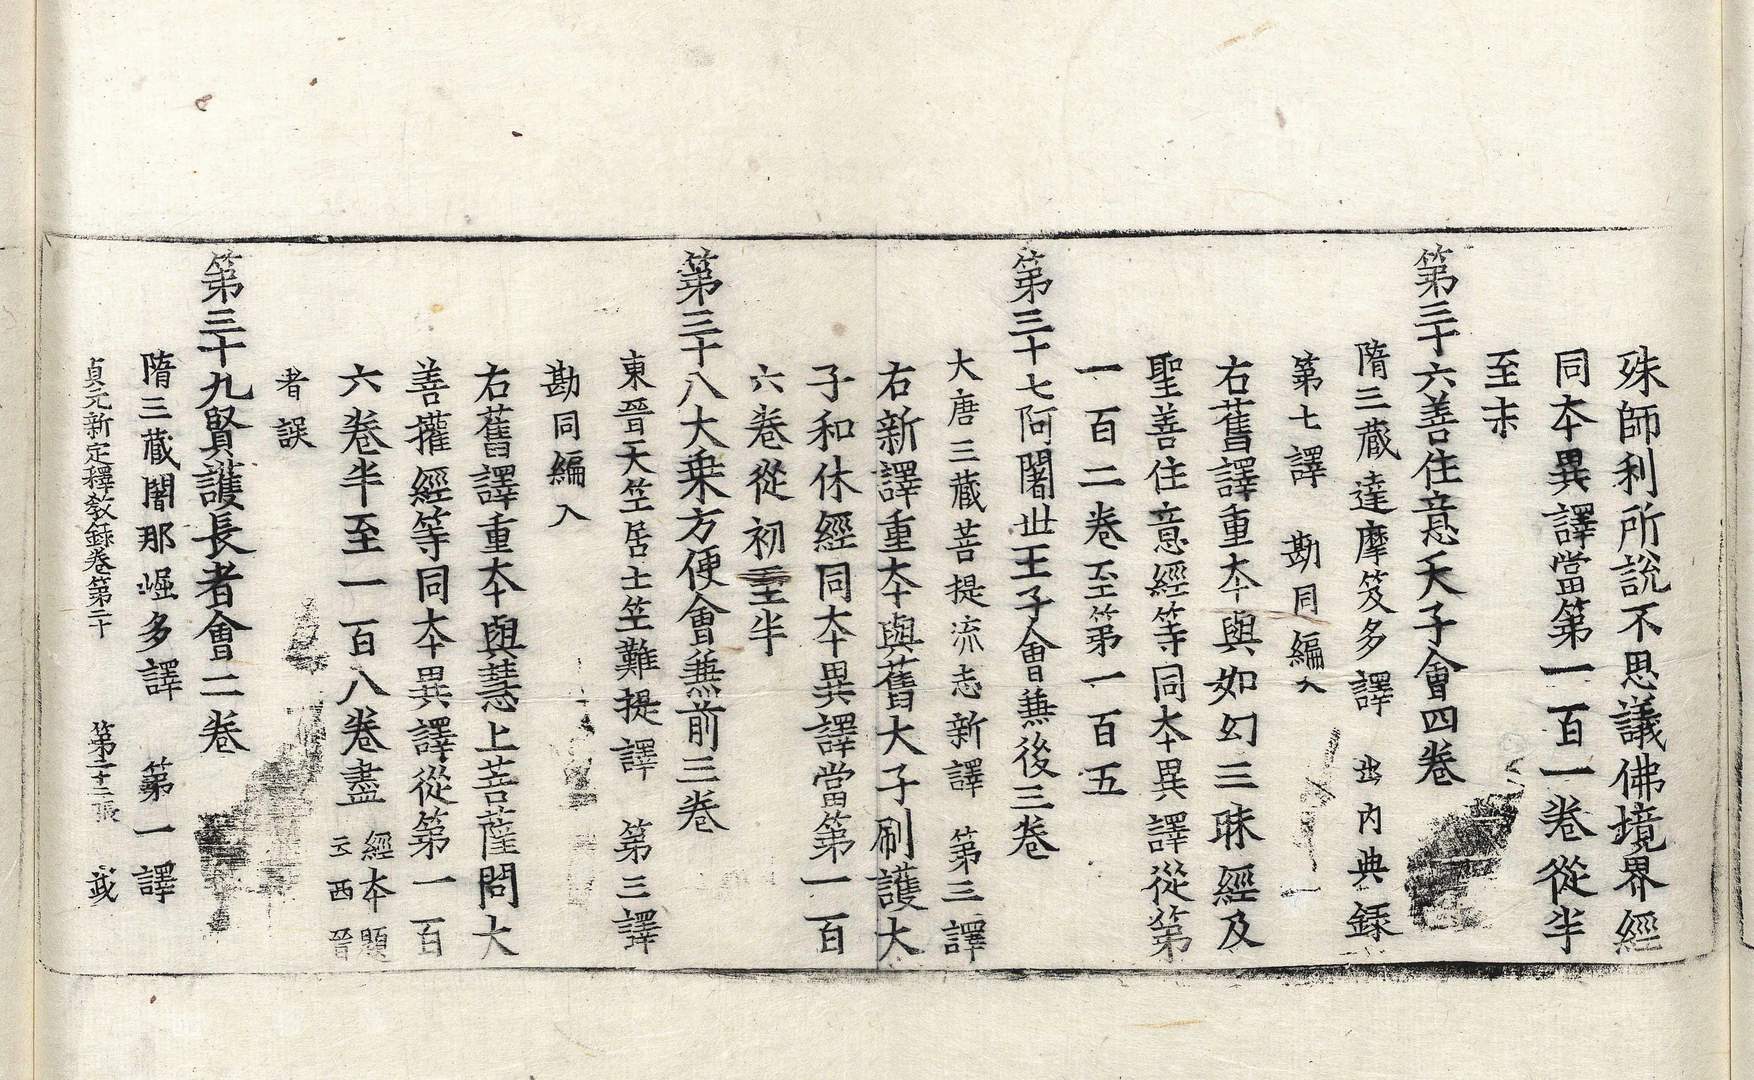 殊師利所說不思議佛境界經
同本異譯當第一百一卷從半
至末
第三十六善住意天子會四卷
隋三藏達摩笈多譯　出內典錄
第七譯　勘同編入
右舊譯重本與如幻三昧經及
聖善住意經等同本異譯從第
一百二卷至第一百五
第三十七阿闍世王子會兼後三卷
大唐三藏菩提流志新譯　第三譯
右新譯重本與舊大子刷護大
子和休經同本異譯當第一百
六卷從初至半
第三十八大乘方便會兼前三卷
東晉天竺居士竺難提譯　第三譯
勘同編入
右舊譯重本與慧上菩薩問大
善攉經等同本異譯從第一百
六卷半至一百八卷盡 經本題
云西晉
者誤
第三十九賢護長者會二卷
隋三藏闍那崛多譯　第一譯
貞元新定釋教錄卷第二十　第二十二張